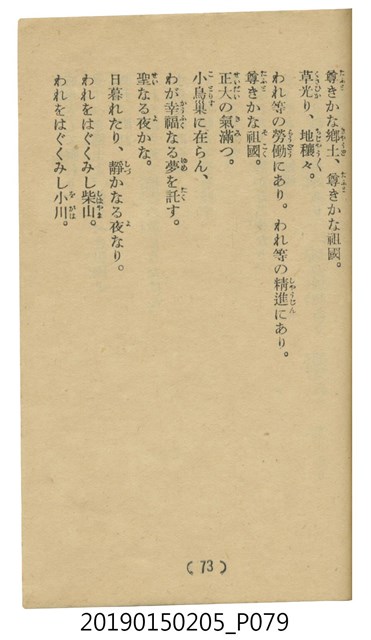 尊きかな郷土、尊きかな祖國。
草光り、地穰々。
われ等の勞働にあり。われ等の精進にあり。
尊きかな祖國。
正大の氣滿つ。
小鳥巣に在らん、
わが幸福なる夢を託す。
聖なる夜かな。
日暮れたり、靜かなる夜なり。
われをはぐくみし柴山。
われをはぐくみし小川。
(73)
20190150205_P079